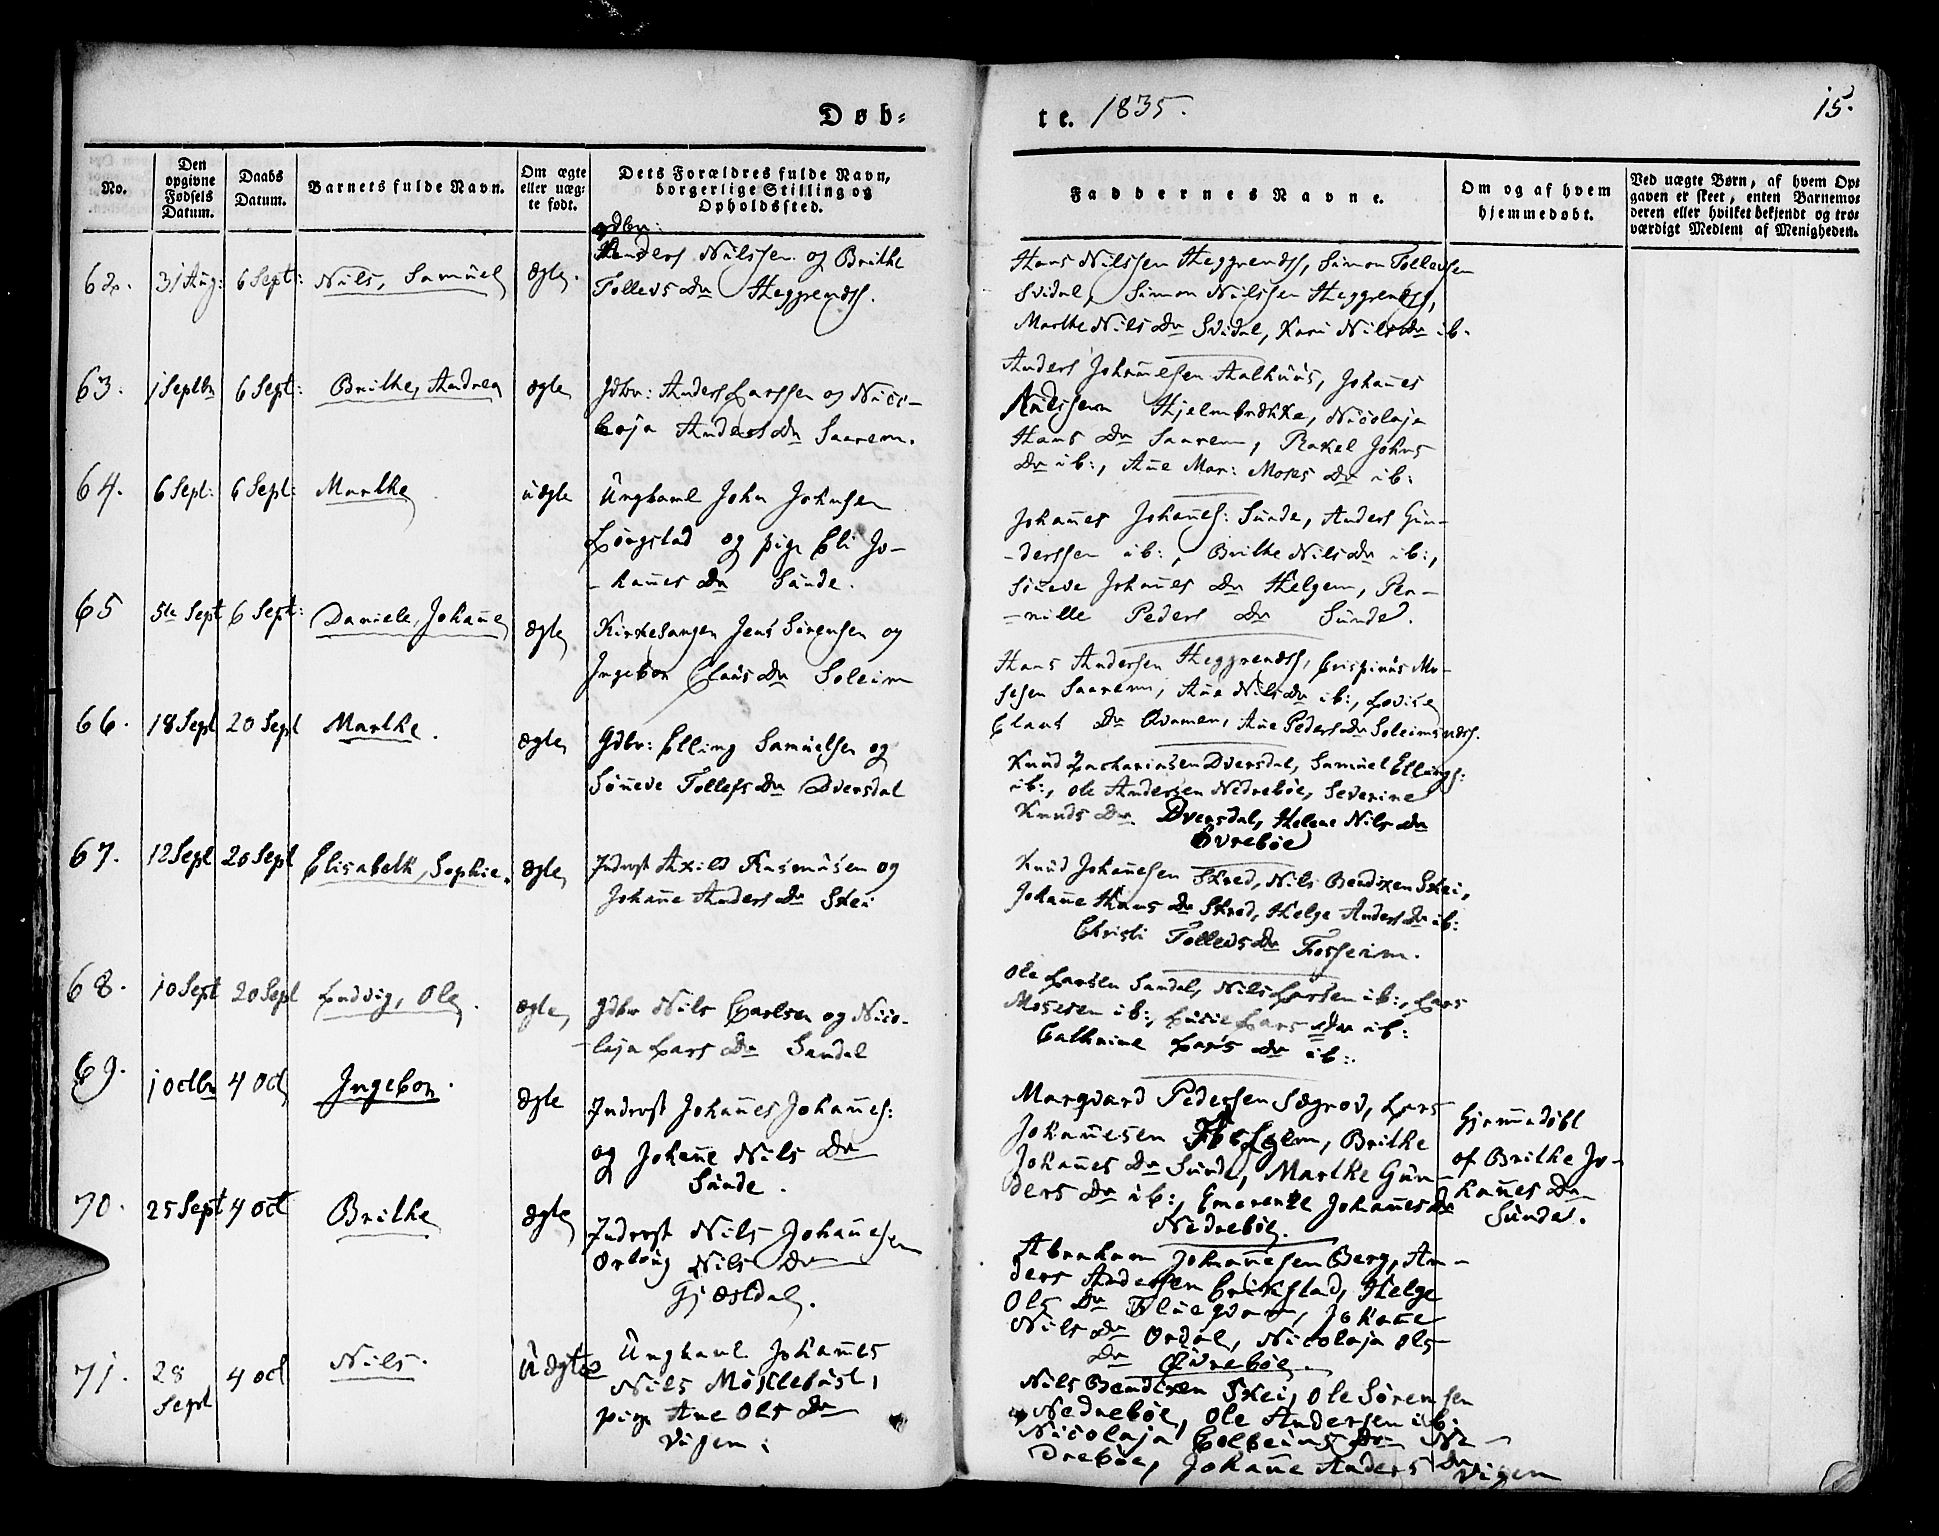 Døb-
te. 1835.
15.
No.
Den opgivne Fødsels Datum.
Daabs Datum.
Barnets fulde Navn.
Om ægte eller uæg- te født.
Dets Forældres fulde Navn, borgerlige Stilling og Opholdssted.
Faddernes Navne.
Om og af hvem hjemmedøbt.
Ved uægte Børn, af hvem Op-
gaven er skeet, enten Barnemo-
deren eller hvilket bekjendt og tro-
værdigt Medlem af Menigheden.
62. 31 Aug: 6 Sept: Nils, Samuel ægte.
gdbr:
Anders Nilssen og Brithe
Tollevs Dr Heggrends.
Hans Nilssen Heggrends, Simon Tollevsen
Svidal, Simon Nilssen Heggrends,
Marthe Nils Dr Svidal, Kari Nils Dr ib.
63. 1 Septbr 6 Sept: Brithe, Andrea ægte
Gdbr: Anders Larssen og Nico-
laja Anders Dr Saarem.
Anders Johannesen Aalhuus, Johannes
Nilssen Hjelmbrække, Nicolaja
Hans Dr Saarem, Rakel Johns
Dr ib:, Ane Mar: Moses Dr ib:
64. 6 Sept: 6 Sept: Marthe uægte
Ungkarl John Johnsen
Longstad og pige Eli Jo-
-hannes Dr Sunde.
Johannes Johannes: Sunde, Anders Gun-
-derssen ib:, Brithe Nils Dr ib:,
Sineve Johannes Dr Helgem, Per-
-nille Peders Dr Sunde.
65 5te Sept 6 Sept: Daniele, Johanne ægte
Kirkesanger Jens Sørensen og
Ingebor Claus Dr Soleim
Hans Andersen Heggrends, Crispinus Mo-
sesen Saarem, Ane Nils Dr ib:, Lovise
Claus Dr Qvamen, Ane Peders Dr Soleimsnæs.
66. 18 Sept 20 Sept Marthe. ægte
Gdbr: Elling Samuelsen og
Sønneve Tollefs Dr Dversdal
Knud Zachariasen Dversdal, Samuel Ellings:
ib:, Ole Andersen Nedrebøe, Severine
Knuds Dr Dversdal, Helene Nils Dr
Øvrebøe
67. 12 Sept 20 Sept Elisabeth, Sophie. ægte
Inderst Axild Rasmusen og
Johanne Anders Dr Skei
Knud Johannesen Skred, Nils Bendixen Skei,
Johanne Hans Dr Skred, Helge Anders Dr ib:
Christi Tollevs Dr Fosseim.
68. 10 Sept 20 Sept Ludvig, Ole. ægte
Gdbr Nils Carlsen og Nico-
-laja Lars Dr Sandal
Ole Larsen Sandal, Nils Larsen ib:, Lars
Mosesen ib:, Lucie Lars Dr ib:
Cathrine Lars Dr ib:.
69. 1 Octbr 4 Oct Ingebor. ægte
Inderst Johannes Johannes:
og Johanne Nils Dr
Sunde.
Marqvard Pederssen Sægrov, Lars
Johannesen Helgem, Brithe
Johannes Dr Sunde, Marthe Gun-
ders Dr ib:, Emerenze Johannes Dr
Nedrebøe.
Hjemmedøbt
af Brithe Jo-
hannes Dr
Sunde.
70. 25 Sept 4 Oct Brithe ægte
Inderst Nils Johannesen
Ørbøug Nils Dr
Gjæsdal.
Abraham Johannesen Berg, An-
ders Andersen Erikstad, Helge
Ols Dr Fluegvam, Johanne
Nils Dr Ordal, Nicolaja Ols
Dr Øvrebøe.
71. 28 Sept 4 oct Nils. Uægte
Ungkarl Johannes
Nils Møklebust,
pige Ane Ols Dr
Vigen:
Nils Bendixen Skei, Ole Sørensen
Nedrebøe, Ole Andersen ib:
Nicolaja Colbeins Dr Ne-
drebøe, Johanne Anders Dr
Vigen